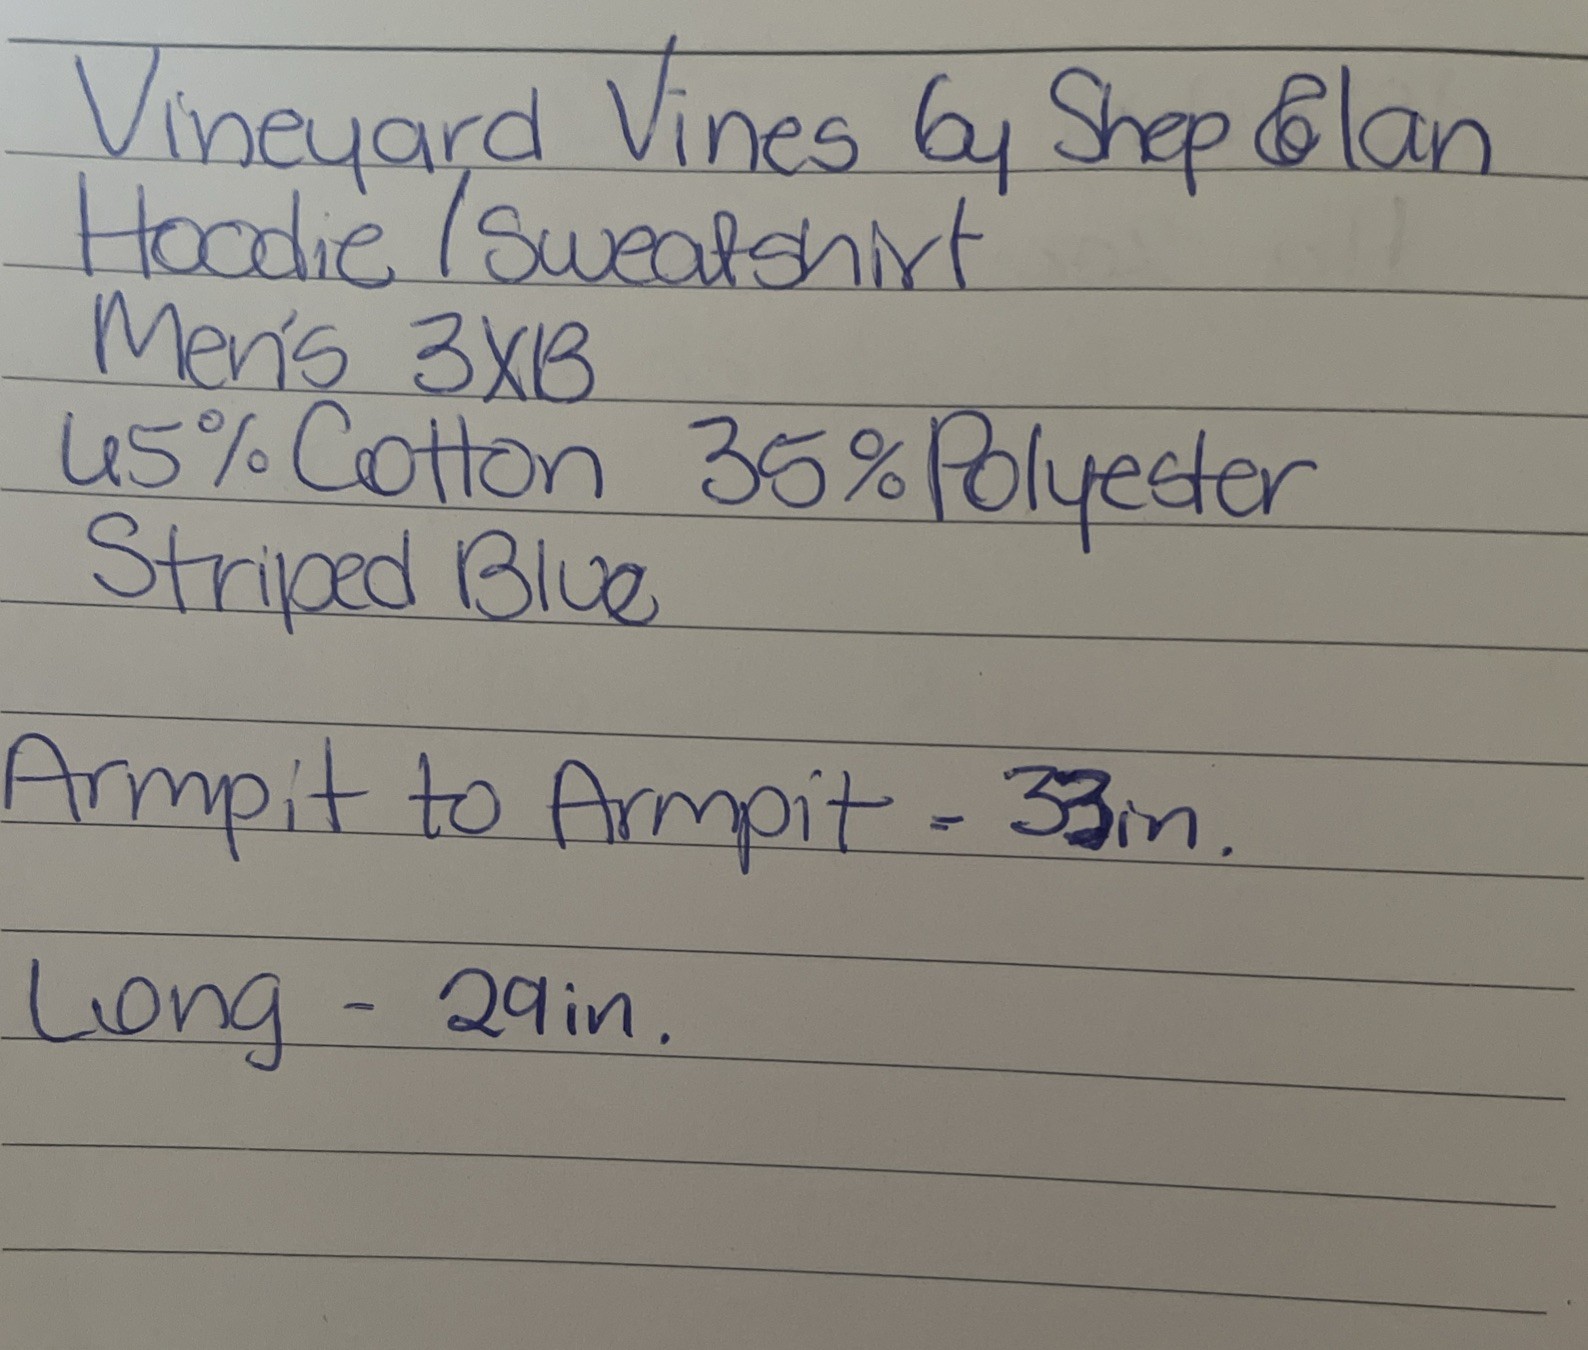 Vineyard Vines by Shep & Ian
Hoodie / Sweatshirt
Men's 3XB
45% Cotton 35% Polyester
Striped Blue
Armpit to Armpit - 33in.
Long - 29in.